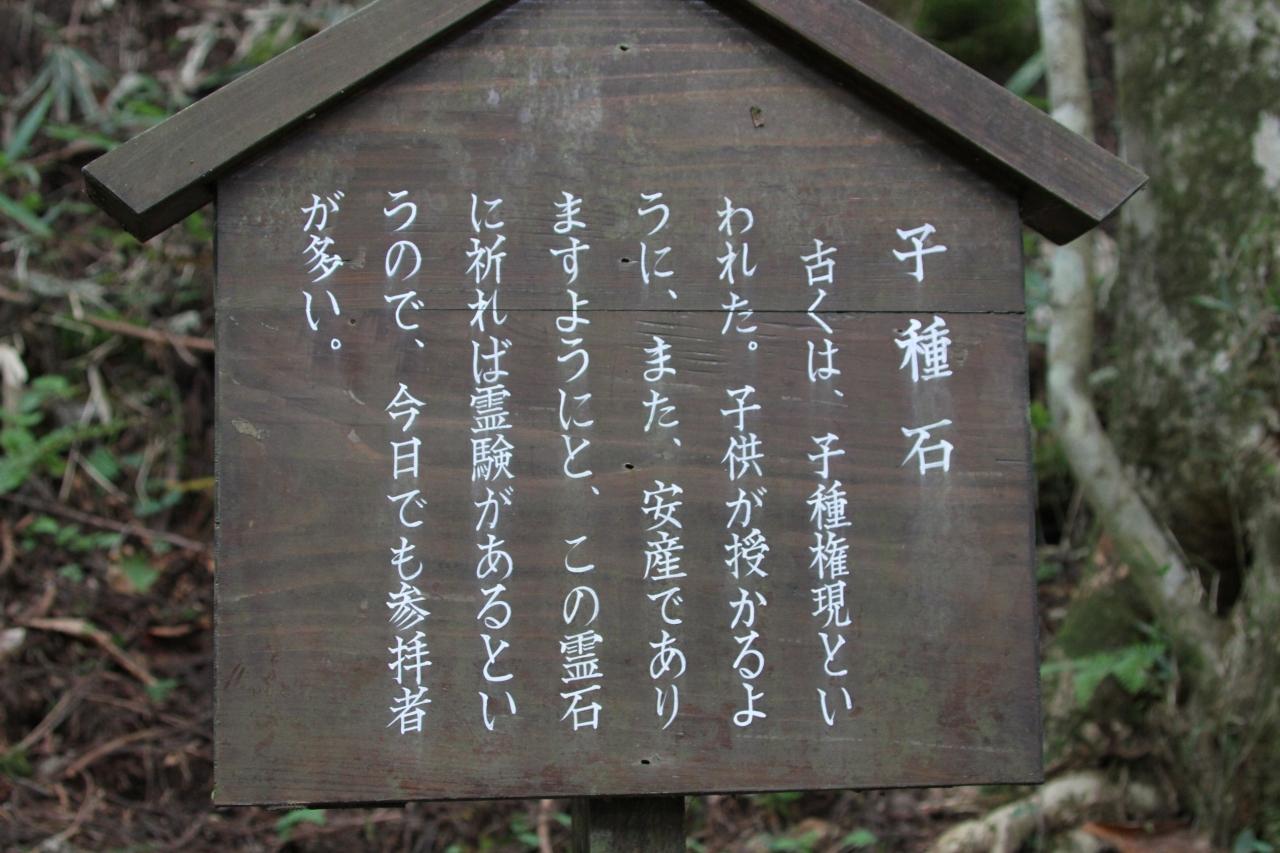 子種石
古くは、子種権現とい
われた。子供が授かるよ
うに、また、安産であり
ますようにと、この霊石
に祈れば霊験があるとい
うので、今日でも参拝者
が多い。